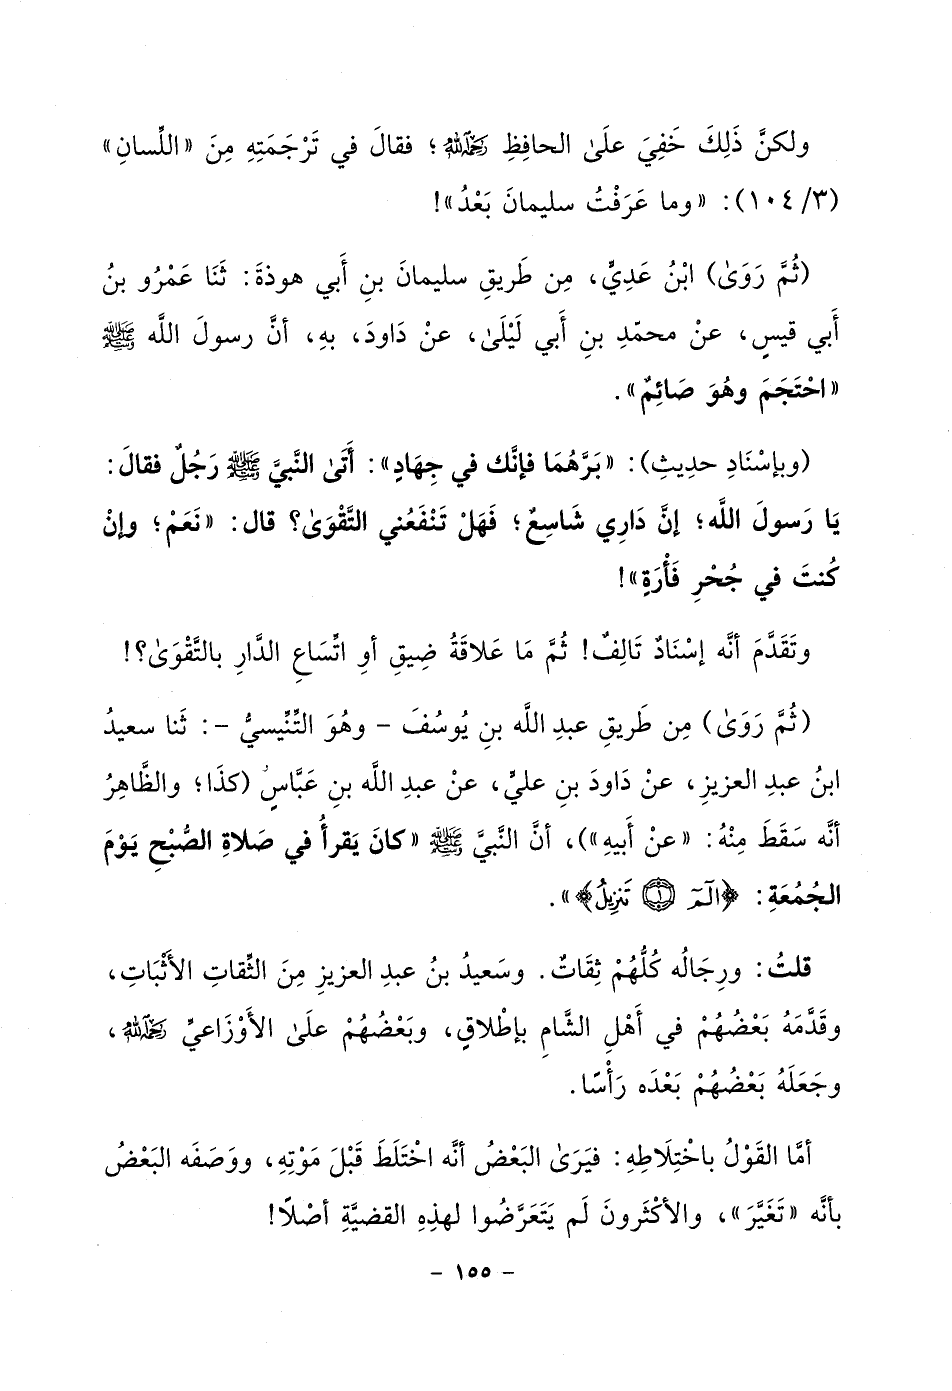 ولكنَّ ذَلِكَ خَفِيَ علَىٰ الحافِظِ رَحِمَهُ اللَّهُ ؛ فقالَ في تَرْجَمَتِهِ مِنَ «اللِّسانِ»
(٣/ ١٠٤): «وما عَرَفْتُ سليمانَ بَعْدُ»!
(ثُمَّ رَوَىٰ) ابْنُ عَدِيٍّ، مِن طَرِيقِ سليمانَ بنِ أَبي هوذةَ: ثَنَا عَمْرُو بنُ
أَبي قيسٍ، عنْ محمّدِ بنِ أَبي لَيْلَىٰ، عنْ دَاودَ، بهِ، أنَّ رسولَ اللَّه ﷺ
«احْتَجَمَ وهُوَ صَائِمٌ».
(وبإسْنَادِ حديثِ): «بَرَّهُمَا فإنَّك في جِهَادٍ»: أَتَىٰ النَّبيَّ ﷺ رَجُلٌ فقالَ:
يَا رَسولَ اللَّه؛ إنَّ دَارِي شَاسِعٌ؛ فَهَلْ تَنْفَعُني التَّقْوَىٰ؟ قال: «نَعَمْ؛ وإنْ
كُنتَ في جُحْرِ فَأْرَةٍ»!
وتَقَدَّمَ أنَّه إسْنَادٌ تَالِفٌ! ثُمَّ مَا عَلاقَةُ ضِيقِ أوِ اتِّسَاعِ الدَّارِ بالتَّقْوَىٰ؟!
(ثُمَّ رَوَىٰ) مِن طَرِيقِ عبدِ اللَّه بنِ يُوسُفَ - وهُوَ التِّنِّيسيُّ -: ثَنا سعيدُ
ابنُ عبدِ العزيزِ، عنْ دَاودَ بنِ عليٍّ، عنْ عبدِ اللَّه بنِ عَبَّاسٍ (كذَا؛ والظَّاهِرُ
أنَّه سَقَطَ مِنْهُ: «عنْ أبيهِ»)، أنَّ النَّبيَّ ﷺ «كانَ يَقرأُ في صَلاةِ الصُّبْحِ يَوْمَ
الجُمُعَةِ: ﴿الٓمٓ ۝١ تَنزِيلُ﴾».
قلتُ: ورِجَالُه كُلُّهُمْ ثِقَاتٌ. وسَعيدُ بنُ عبدِ العزيزِ مِنَ الثِّقاتِ الأَثْبَاتِ،
وقَدَّمَهُ بَعْضُهُمْ في أَهْلِ الشَّامِ بإطْلاقٍ، وبَعْضُهُمْ علَىٰ الأَوْزَاعيِّ رَحِمَهُ اللَّهُ ،
وجَعَلَهُ بَعْضُهُمْ بَعْدَه رَأْسًا.
أمَّا القَوْلُ باخْتِلَاطِهِ: فيَرَىٰ البَعْضُ أنَّه اخْتَلَطَ قَبْلَ مَوْتِهِ، ووَصَفَه البَعْضُ
بأنَّه «تَغَيَّرَ»، والأكْثَرونَ لَم يَتَعَرَّضُوا لهذِهِ القضيَّةِ أصْلًا!
- ١٥٥ -